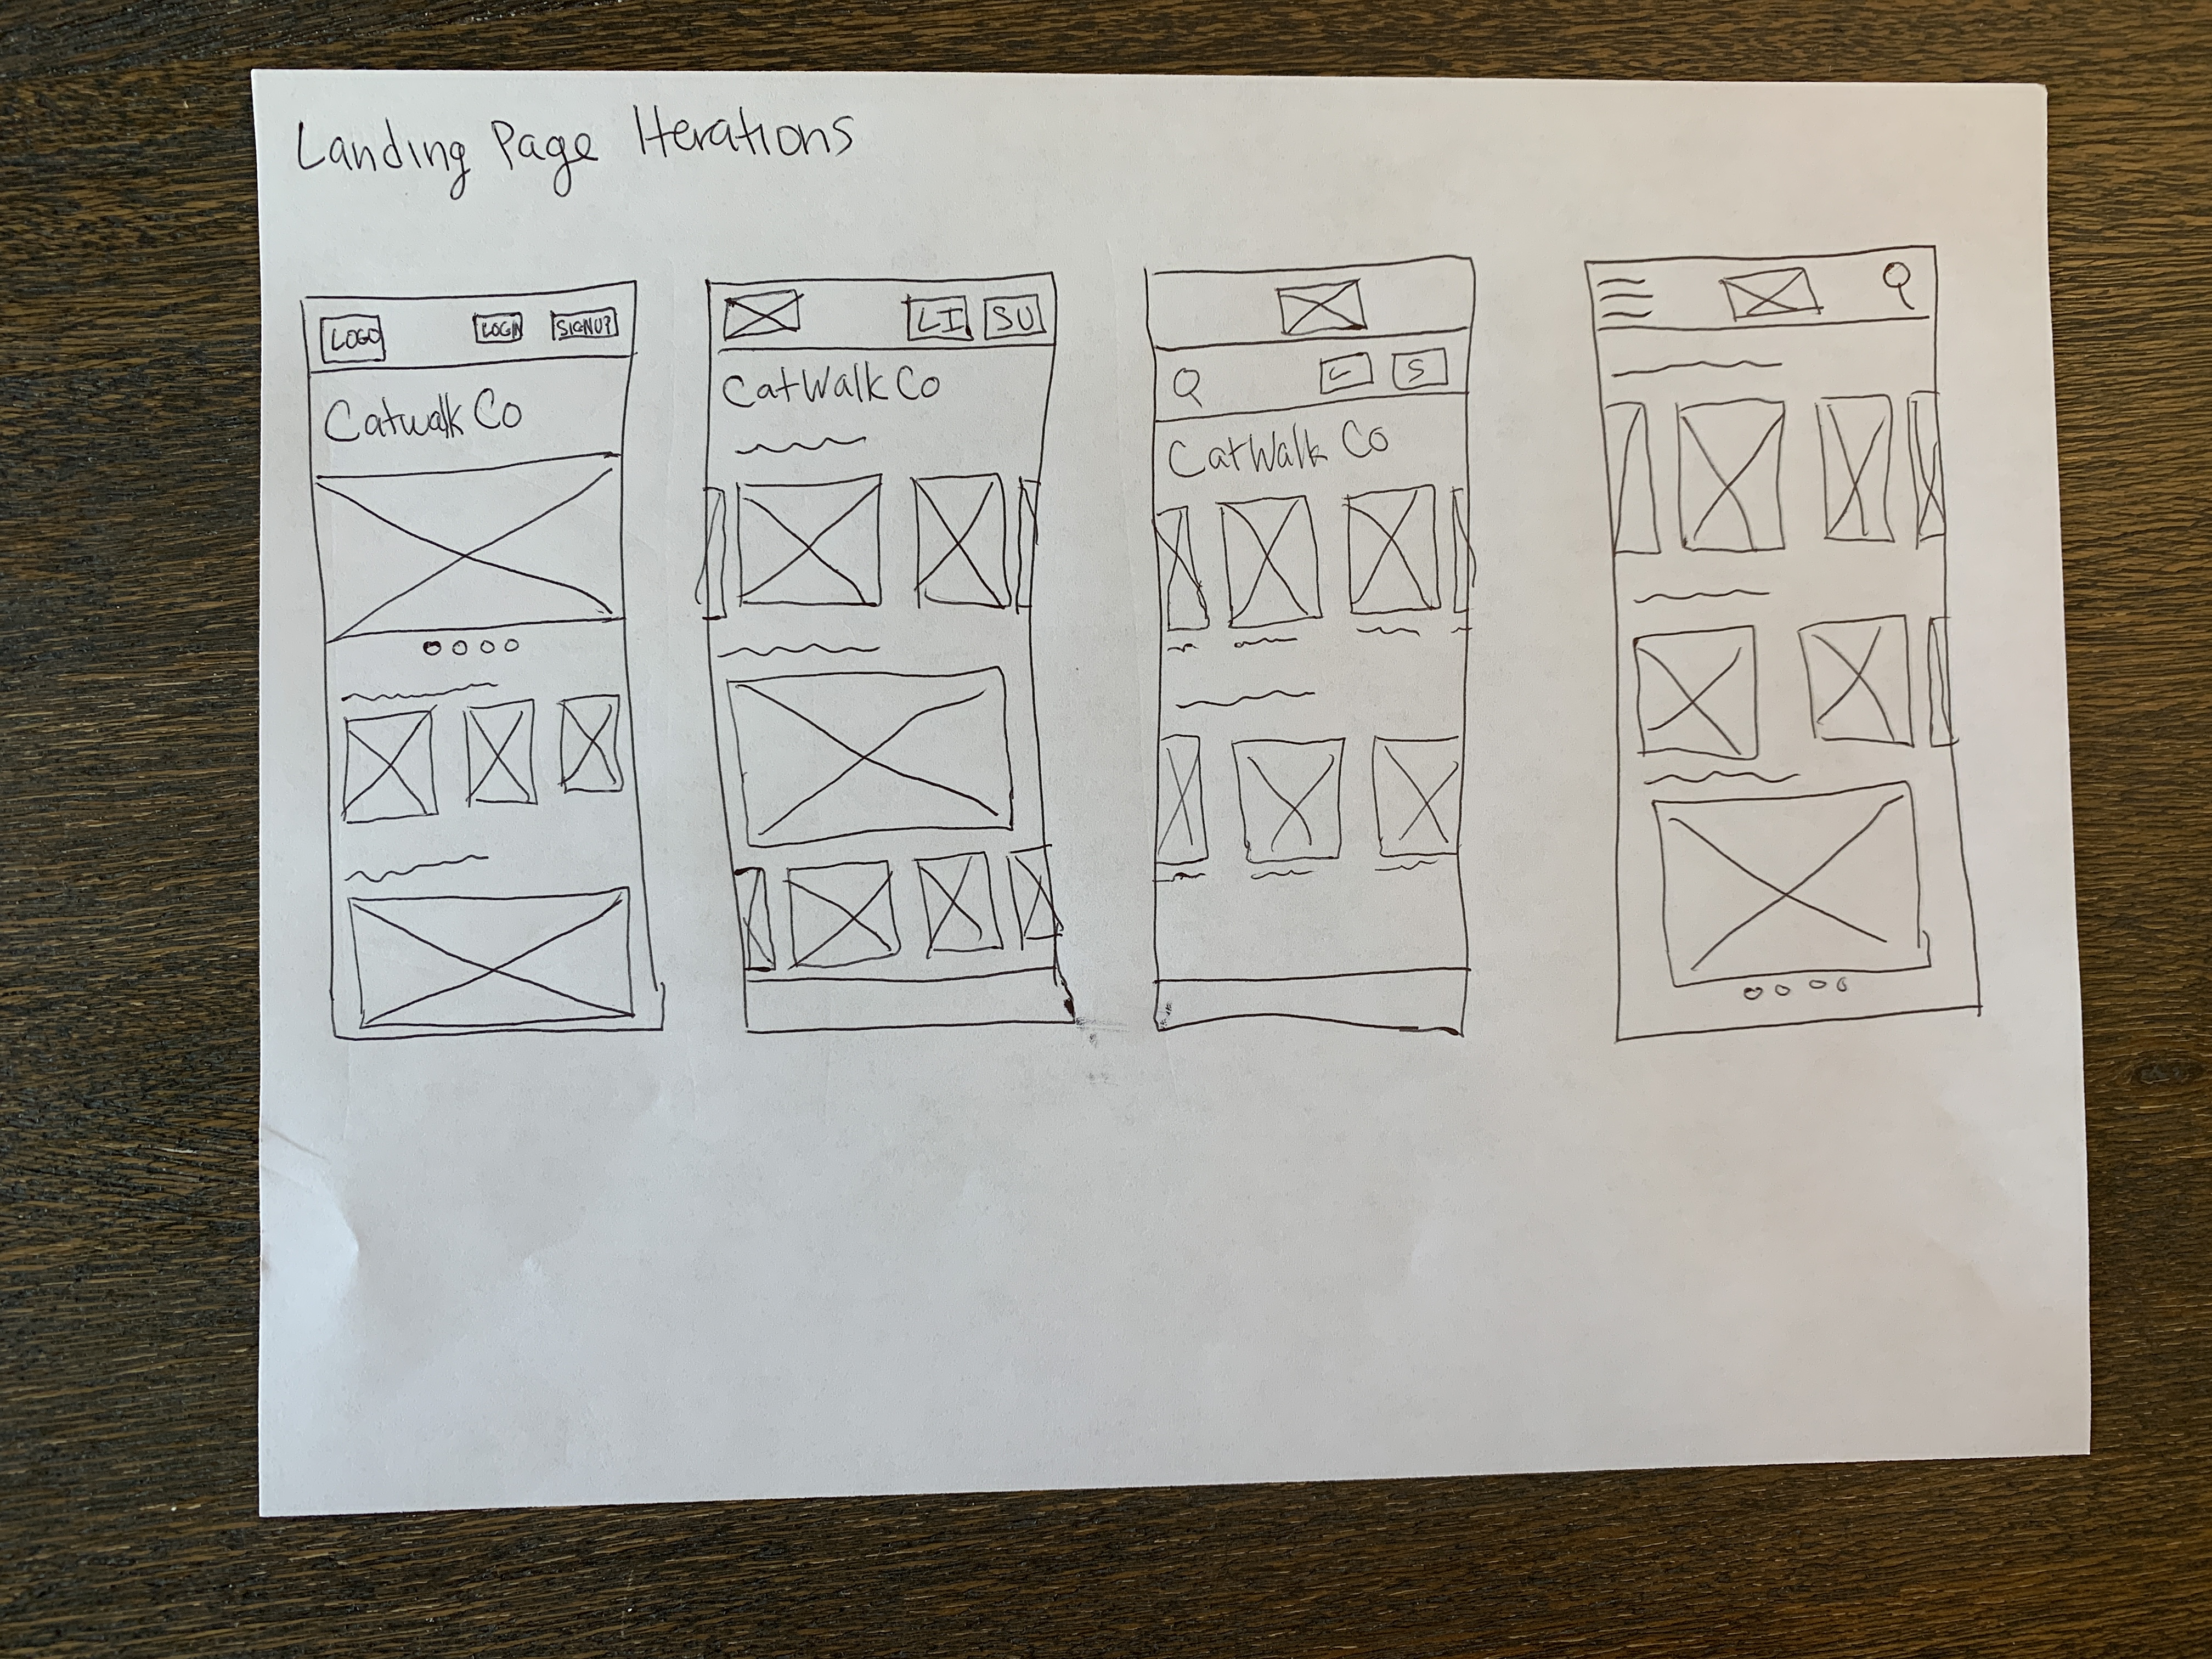 Landing Page Iterations
LOGO LOGIN SIGNUP
Catwalk Co
LI SU
CatWalk Co
L S
CatWalk Co